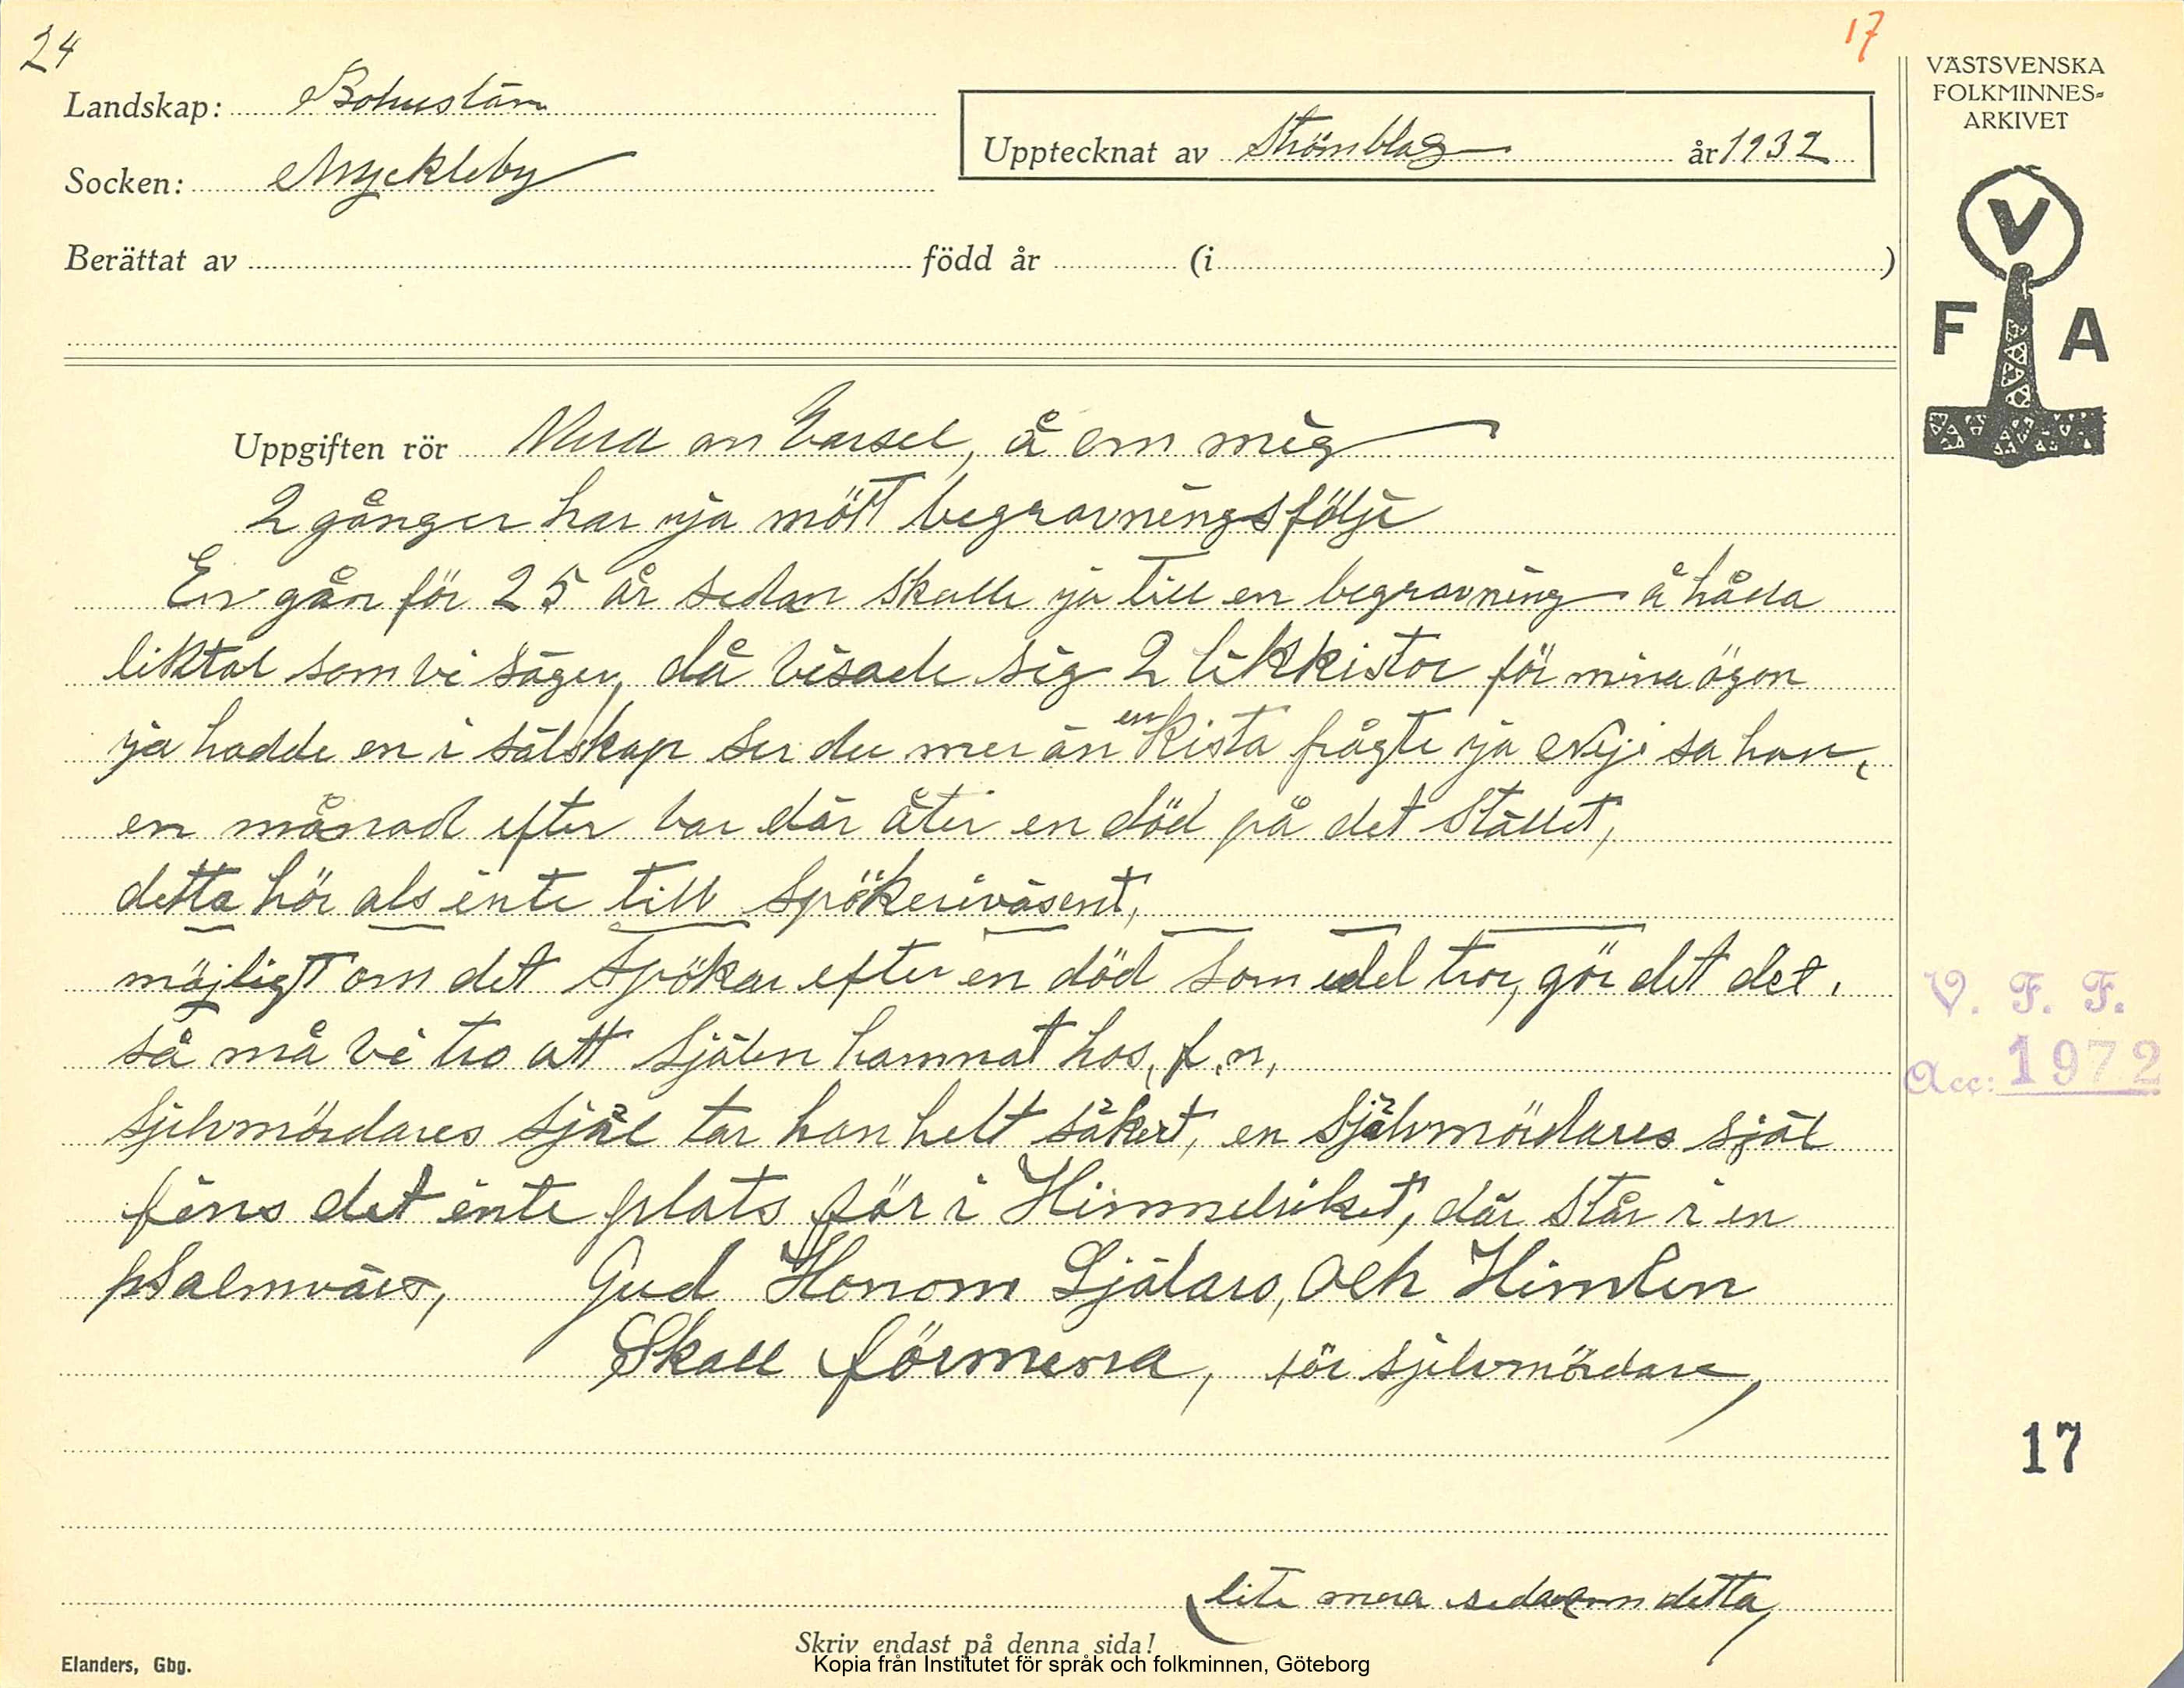 24
17
Landskap: Bohuslän
Socken: Myckleby
Upptecknat av Strömblag år 1932
Berättat av född år (i )
VÄSTSVENSKA
FOLKMINNES=
ARKIVET
V
F A
Uppgiften rör Mera om Varsel, å om mig
2 gånger har ja mött begravningsfölje
En gån för 25 år sedan skulle ja till en begravning å hålla
liktal som vi säger, då visade sig 2 likkistor för mina ögon
ja hadde en i sälskap ser du mer än en kista frågte ja Neji sa han,
en månad efter var där åter en död på det stället,
detta hör als inte till spökeriväsent,
möjligt om det spökar efter en död som del tror, gör det det.
så må vi tro att själen hamnat hos, f.n,
sjelvmördares själ tar han helt säkert, en självmördares själ
fins det inte plats för i Himmelriket, där står i en
psalmvärs, Gud Honom Själaro, och Himlen
Skall förmena, för sjelvmördare,
lite mera sedan om detta,
V. F. F.
Acc: 1972
17
Skriv endast på denna sida!
Elanders, Gbg.
Kopia från Institutet för språk och folkminnen, Göteborg